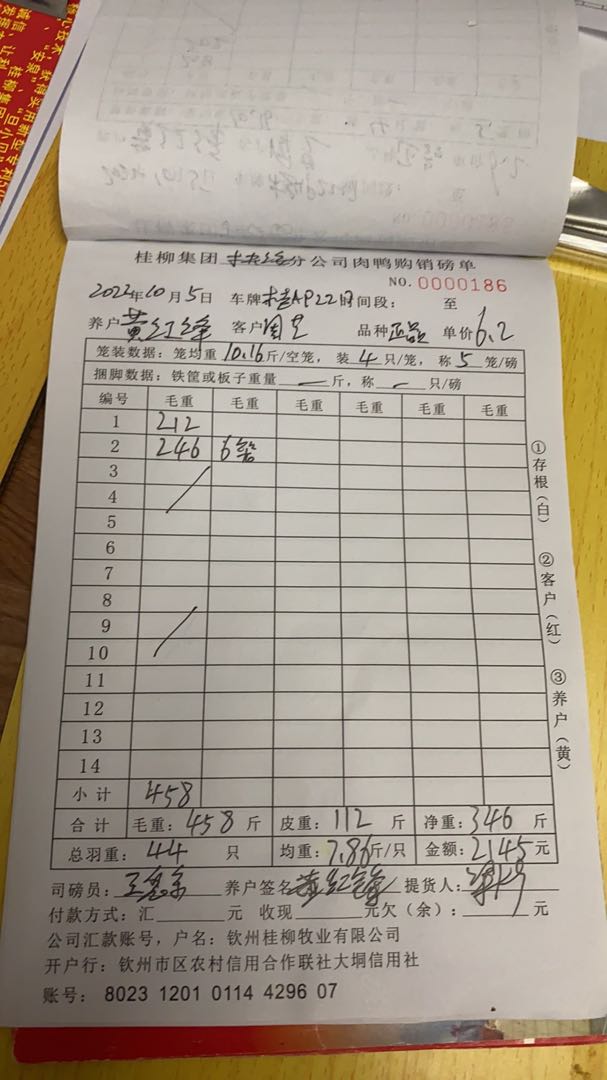 桂柳集团 分公司肉鸭购销磅单
NO. 0000186
2022年10月5日 车牌 桂AP22 时间段: 至
养户 黄红锋 客户 品种 正品 单价 6.2
笼装数据: 笼均重 10.16 斤/空笼, 装 4 只/笼, 称 5 笼/磅
捆脚数据: 铁筐或板子重量 — 斤, 称 — 只/磅
编号 毛重 毛重 毛重 毛重 毛重 毛重
1 212
2 246 6笼
3
4
5
6
7
8
9
10
11
12
13
14
小计 458
合计 毛重: 458 斤 皮重: 112 斤 净重: 346 斤
总羽重: 44 只 均重: 7.86 斤/只 金额: 2145 元
司磅员: 养户签名 黄红锋 提货人:
付款方式: 汇 元 收现 元 欠(余): 元
公司汇款账号, 户名: 钦州桂柳牧业有限公司
开户行: 钦州市区农村信用合作联社大垌信用社
账号: 8023 1201 0114 4296 07
①存根(白)
②客户(红)
③养户(黄)